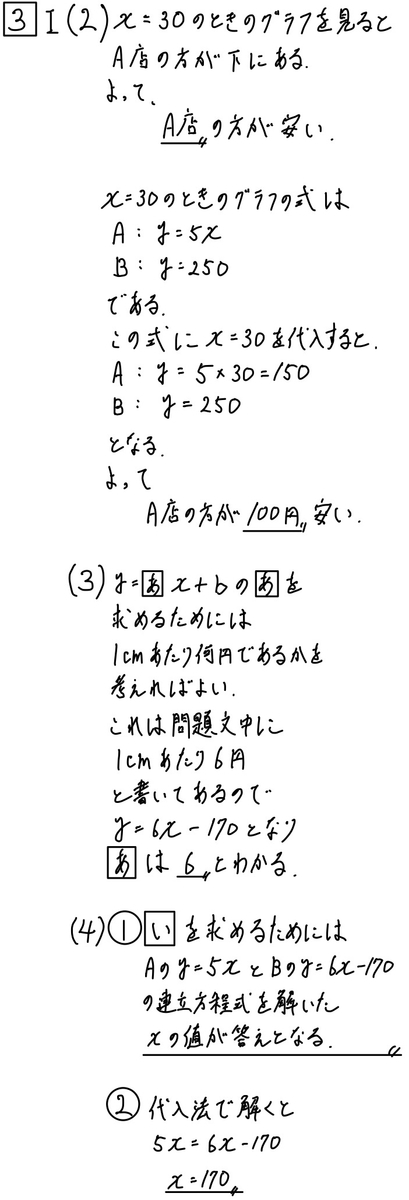 3 I (2) x=30のときのグラフを見ると
A店の方が下にある.
よって、
A店〃の方が安い.
x=30のときのグラフの式は
A: y=5x
B: y=250
である.
この式にx=30を代入すると.
A: y=5×30=150
B: y=250
となる.
よって
A店の方が100円〃安い.
(3) y=あx+bのあを
求めるためには
1cmあたり何円であるかを
考えればよい.
これは問題文中に
1cmあたり6円
と書いてあるので
y=6x-170となり
あは6〃とわかる.
(4)①いを求めるためには
Aのy=5xとBのy=6x-170
の連立方程式を解いた
xの値が答えとなる.〃
②代入法で解くと
5x=6x-170
x=170〃